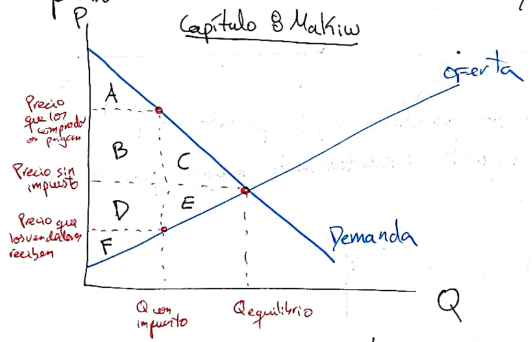 P
Capítulo 8 Makiw
oferta
A
Precio
que los
comprador
es pagan
B
C
Precio sin
impuesto
D
E
Precio que
los vendedores
reciben
F
Demanda
Q con
impuesto
Q equilibrio
Q